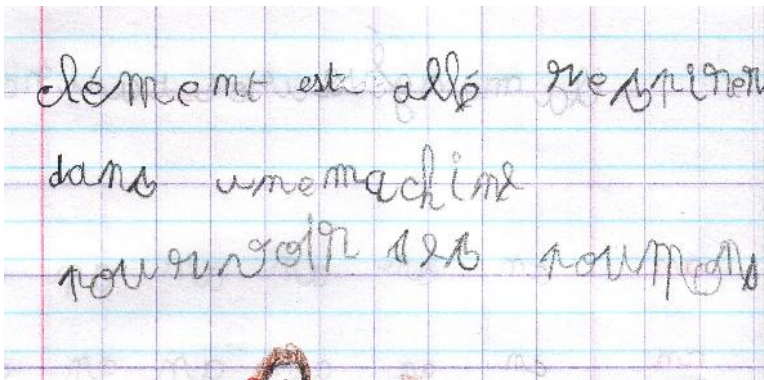 clément est allé respirer
dans une machine
pour voir ses poumons